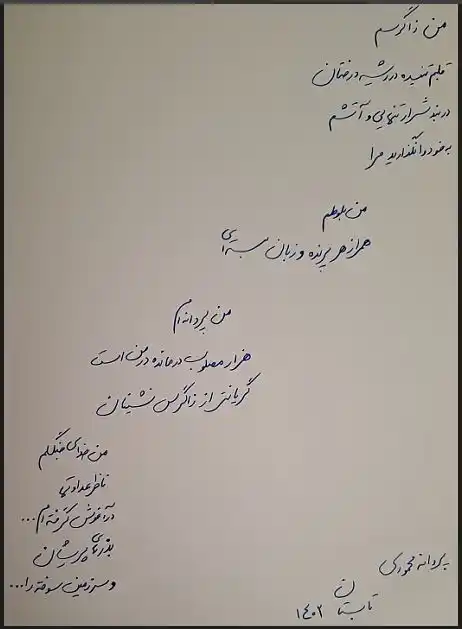 من زاگرسم
قلبم تنیده در ریشه درختان
در بند شرار تنهایی و آتشم
به خود وانگذارید مرا
من بلوطم
همراز هر پرنده و زبان بسته‌ای
من پروانه‌ام
هزار مصلوب درمانده در من است
گریانتر از زاگرس نشینان
من خدای جنگلم
ناظر عداوتها
در آغوش گرفته‌ام...
بذرهای پریشان
و سرزمین سوخته را...
پروانه محمودی
تابستان ۱۴۰۲